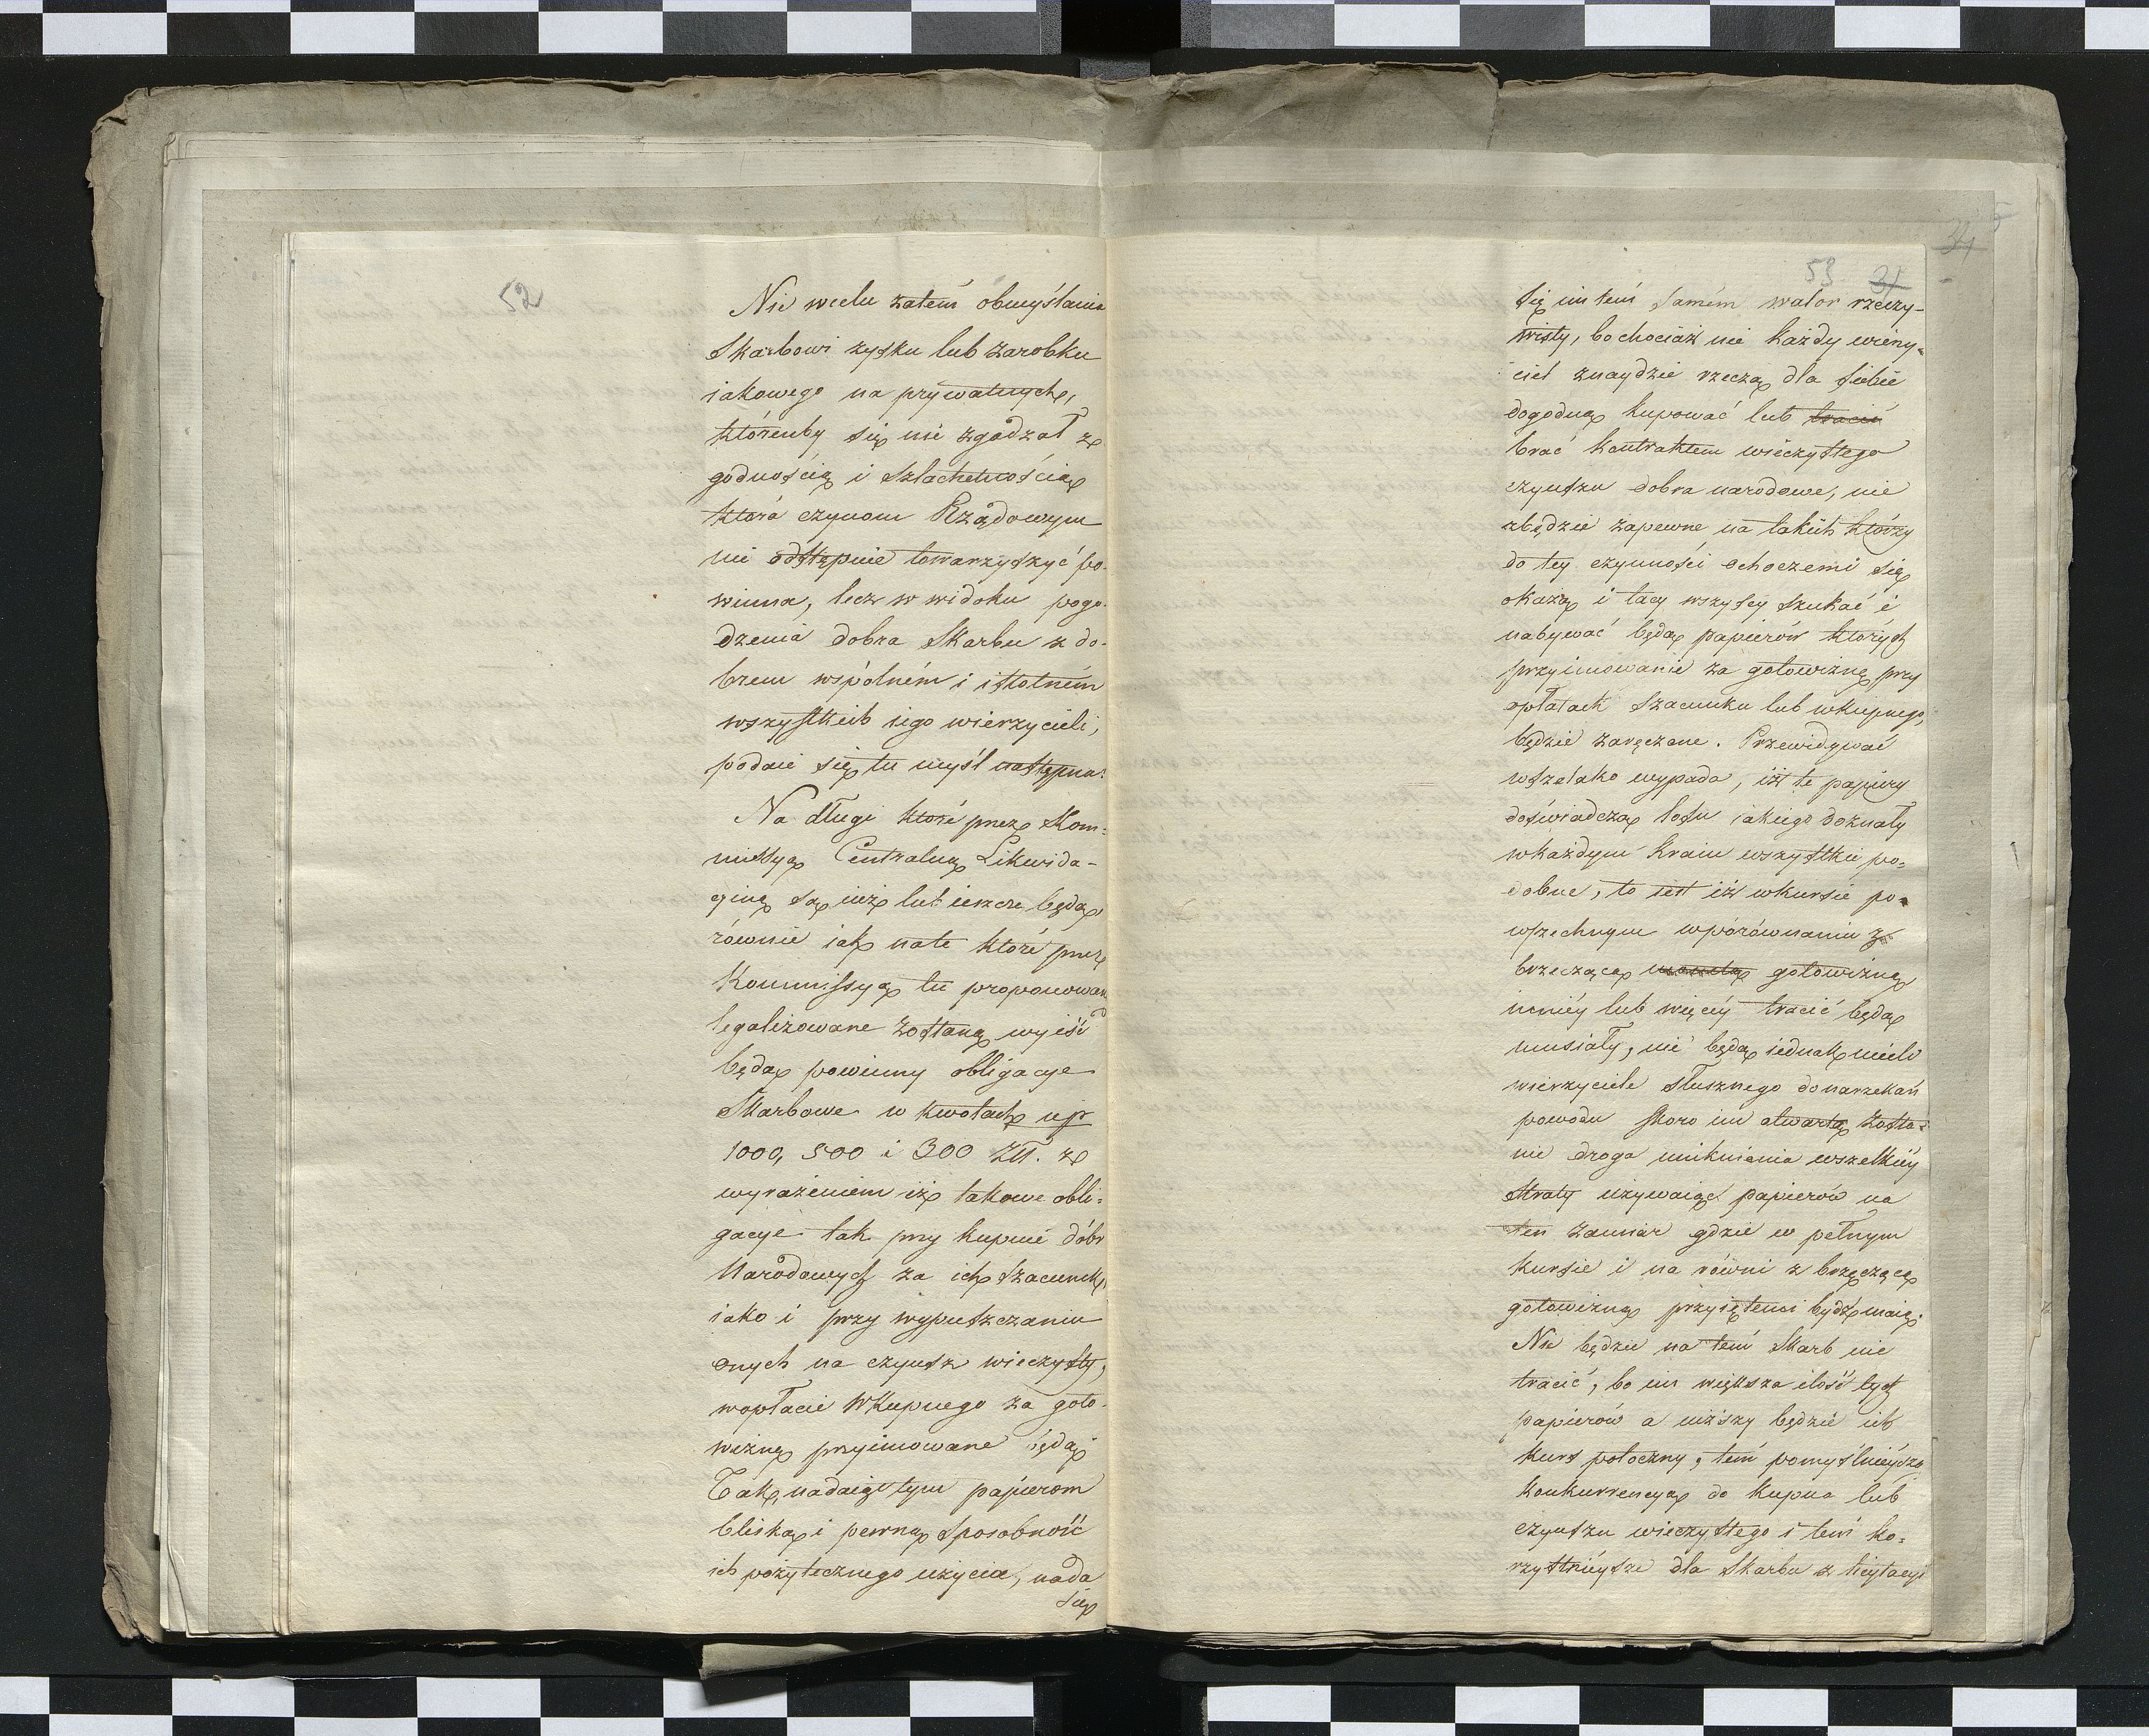 52
Nie w celu zatem obmyślania
Skarbowi zysku lub zarobku
iakowego na prywatnych,
któreuby się nie zgadzał z
godnością i szlachetnością
która czynom Rządowym
nie odstępnie towarzyszyć po-
winna, lecz w widoku pogo-
dzenia dobra Skarbu z do-
brem wspólném i istotném
wszystkich iego wierzycieli,
podaie się tu myśl następna:
Na długi które przez Kom-
missyą Centralną Likwida-
cyiną są iuż lub ieszcze będą,
równie iak na te które przez
Kommissyą tu proponowaną
legalizowane zostaną wyiść
będą powinny obligacye
Skarbowe w kwotach np
1000, 500 i 300 Złl. z
wyrażeniem iż takowe obli-
gacye tak przy kupnie dóbr
Narodowych za ich szacunek,
iako i przy wypuszczaniu
onych na czynsz wieczysty,
w opłacie wkupnego za goto-
wiznę przyimowane będą
Tak, nadaiąc tym papierom
bliską i pewną sposobność
ich pożytecznego użycia, nada
się
53 31
34
się im tem samém walor rzeczy-
wisty, bo chociaż nie każdy wierzy-
ciel znaydzie rzeczą dla siebie
dogodną kupować lub
brać kontraktem wieczystego
czynszu dobra narodowe, nie
zbędzie zapewne na takich którzy
do tey czynności ochoczemi się
okażą i tacy wszyscy szukać i
nabywać będą papierów których
przyimowanie za gotowiznę przy
opłatach szacunku lub wkupnego,
będzie zaręczone. Przewidywać
wszelako wypada, iż te papiery
doświadczą losu iakiego doznały
w każdym kraiu wszystkie po-
dobne, to iest iż w kursie po-
wszechnym w porównaniu z
brzęczącą monetą gotowizną
mniéy lub więcéy tracić będą
musiały, nie będą iednak mieli
wierzyciele słusznego do narzekań
powodu skoro im otwartą zosta-
nie droga uniknienia wszelkiéy
straty używaiąc papierów na
ten zamiar gdzie w pełnym
kursie i na równi z brzęczącą
gotowizną przyiętemi bydź maią.
Nie będzie na tem Skarb nic
tracić, bo im większa ilość tych
papierów a niższy będzie ich
kurs potoczny, tem pomyślnieysza
konkurrencya do kupna lub
czynszu wieczystego i tem ko-
rzystnieysze dla Skarbu z licytacyi